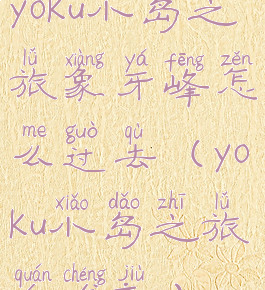 yoku小岛之
lǚ xiàng yá fēng zěn
旅象牙峰怎
me guò qù
么过去(yo
xiǎo dǎo zhī lǚ
ku小岛之旅
quán chéng jiù